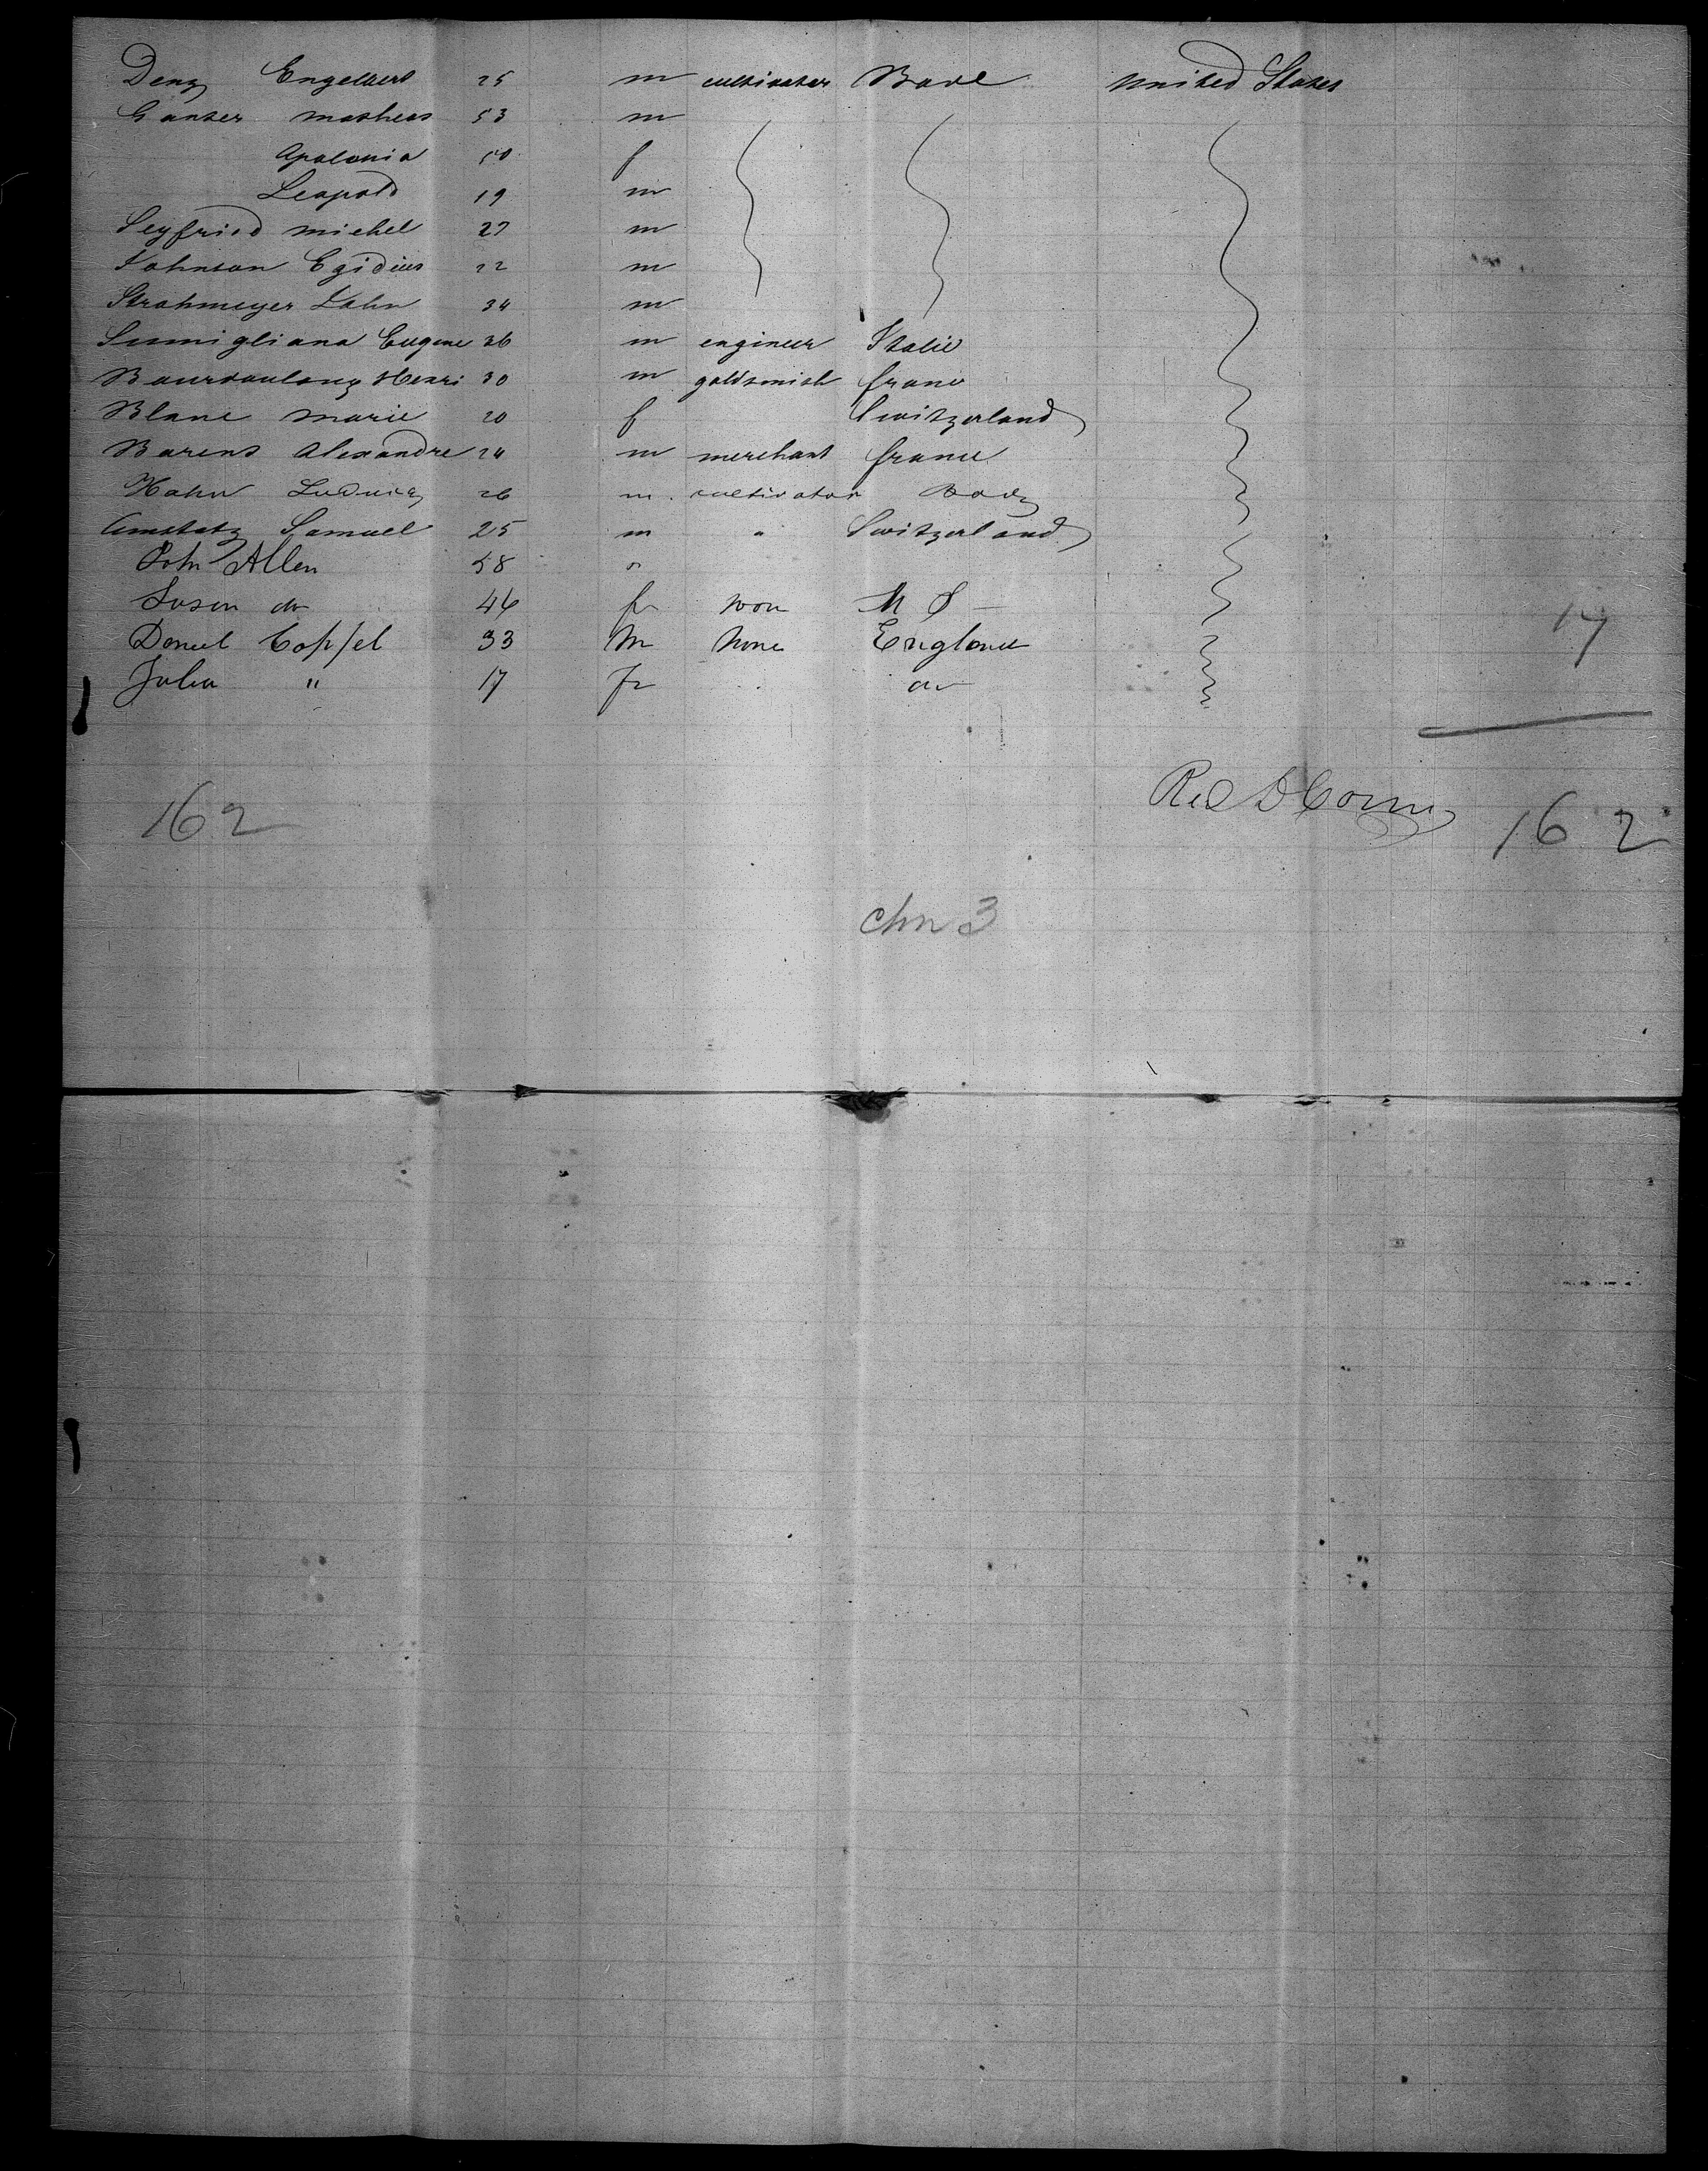 Denz Engelbert 25 m cultivator Bade United States
Ganter Matheas 53 m
Apolonia 50 f
Leopold 19 m
Seyfried Michel 27 m
Johnson Egidius 22 m
Strohmeyer John 34 m
Sumigliana Eugene 36 m engineer Italie
Henri 30 m goldsmith france
Blanc Marie 20 f Switzerland
Barens Alexandre 24 m merchant france
Hahn Ludwig 26 m cultivator
Amstatz Samuel 25 m " Switzerland
John Allen 58 "
Susan do 46 f non U S
Daniel Coppel 33 M None England
Julia " 17 f do
17
162
162
chn 3